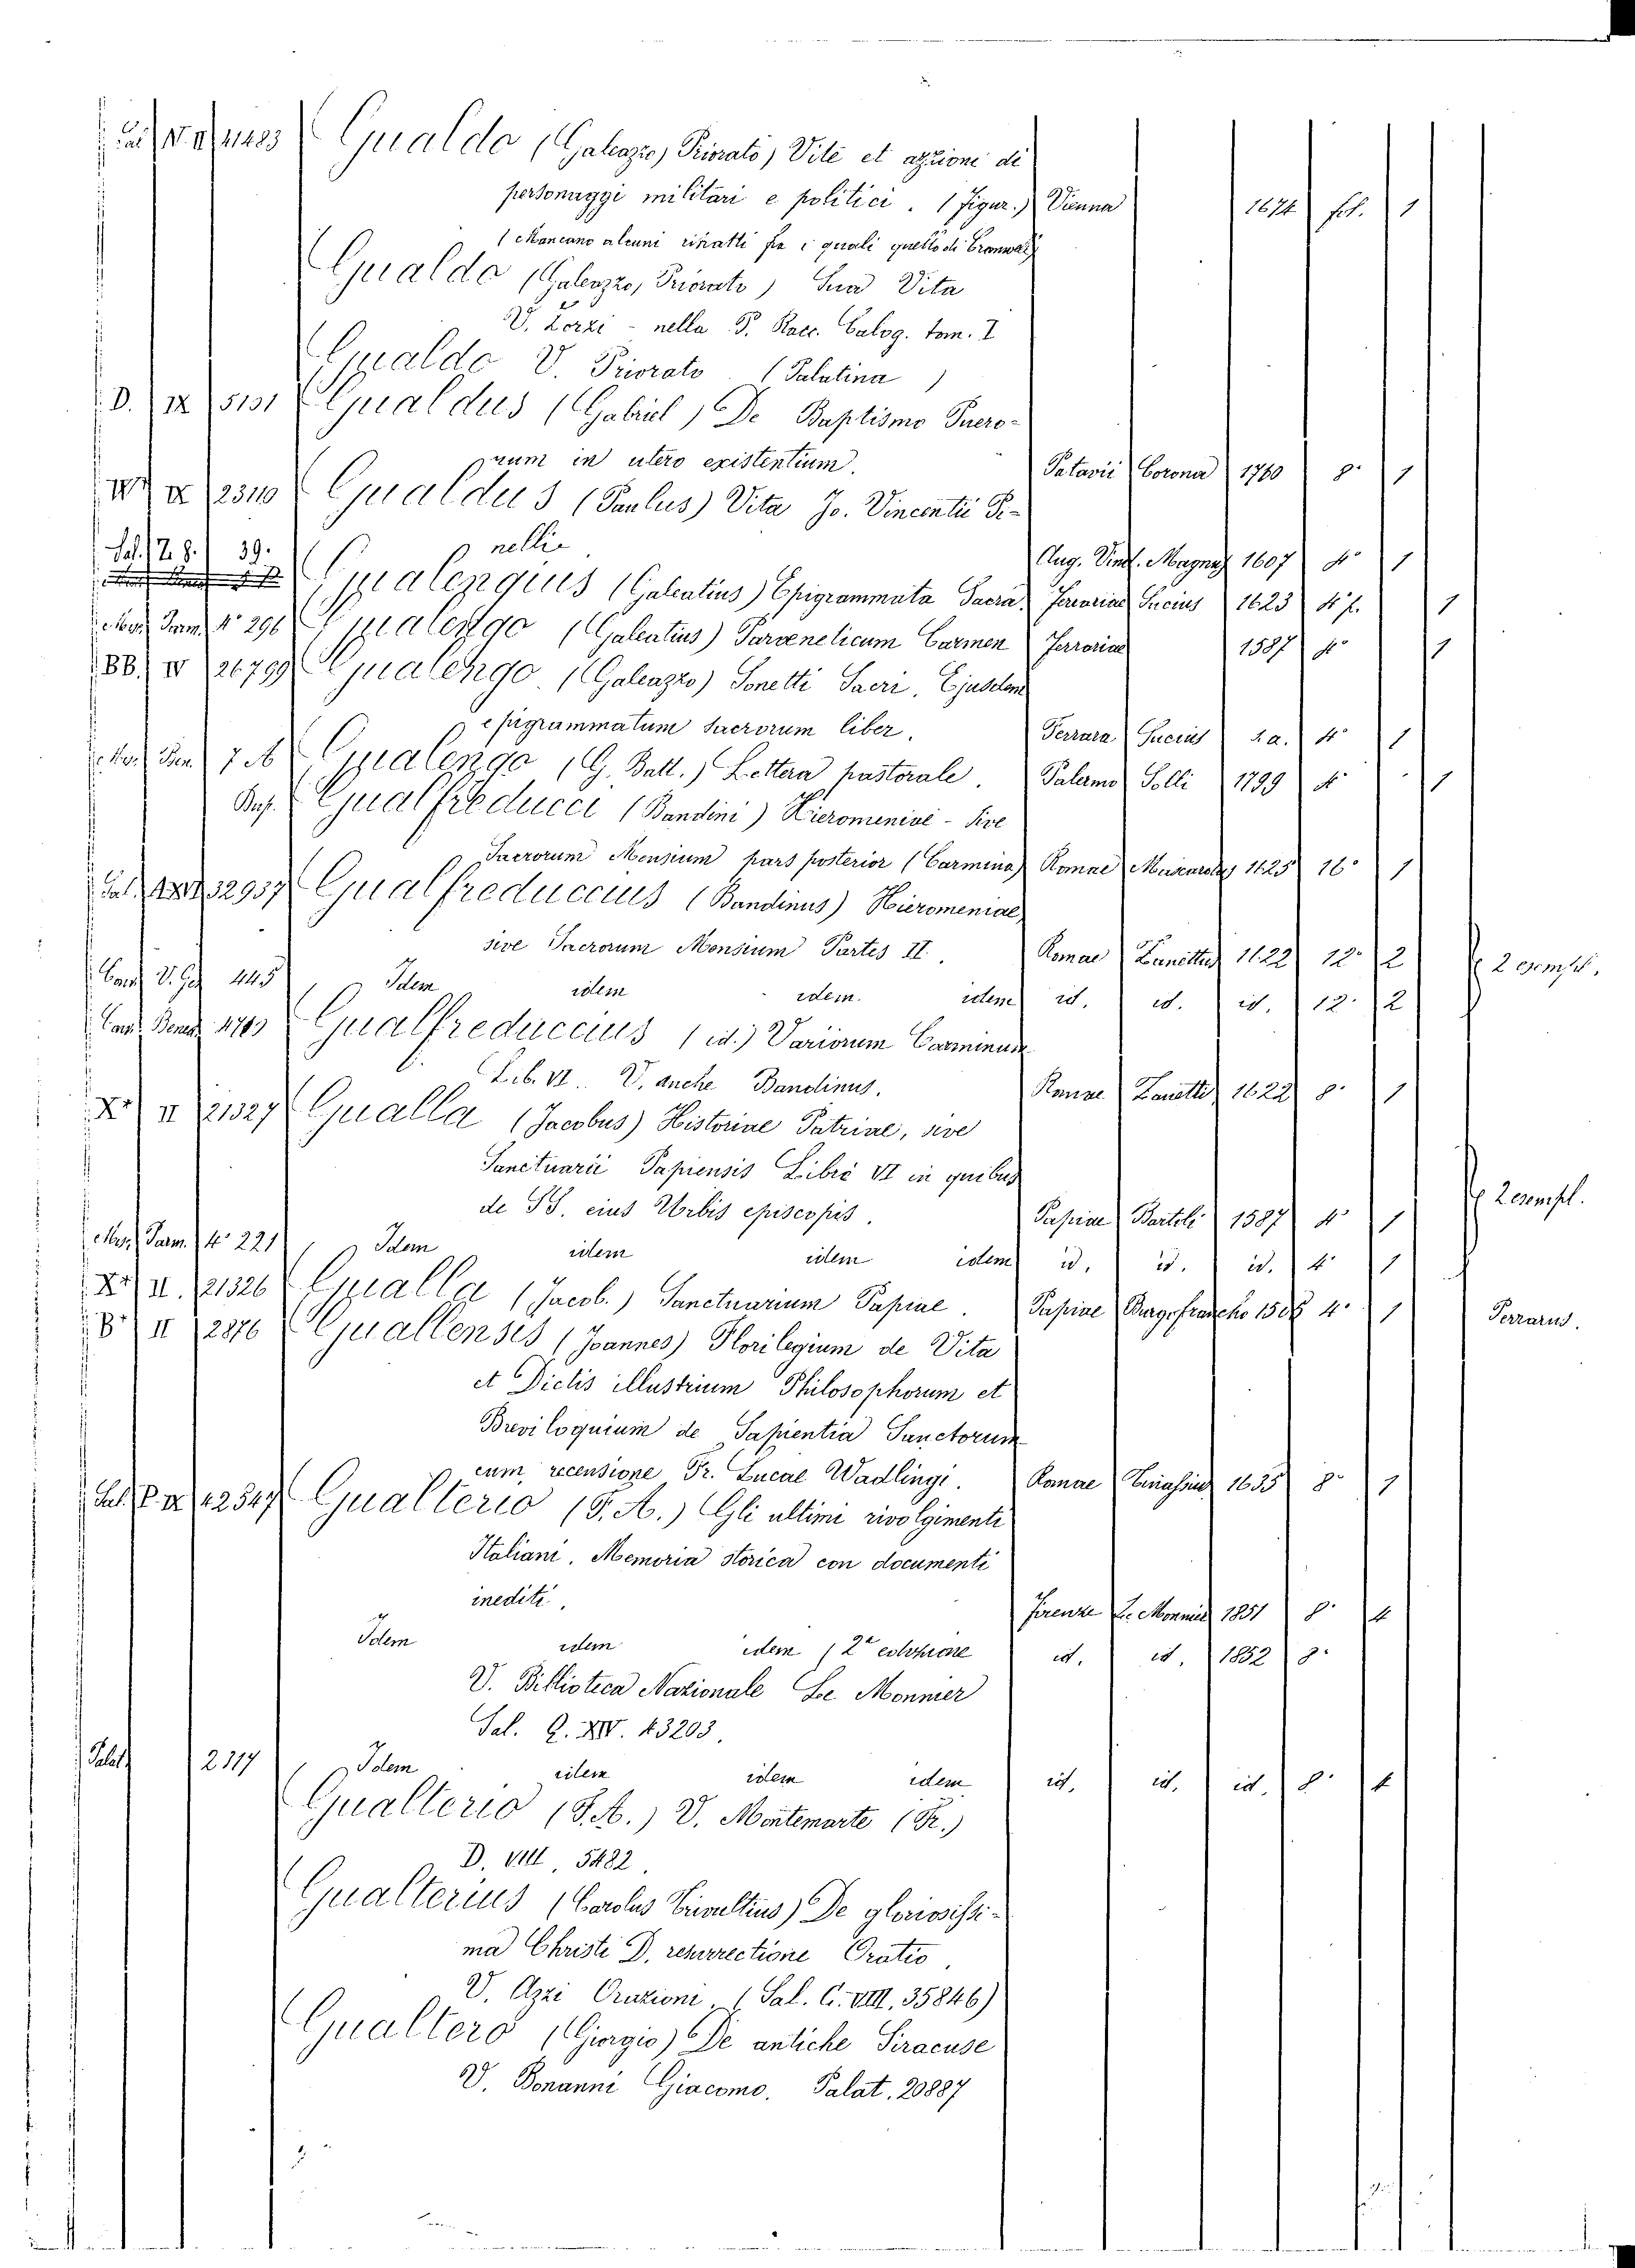 Sal. N. II 41483 Gualdo (Galeazzo, Priorato) Vite et azzioni di
personaggi militari e politici. (figur.) Vienna 1674 fol. 1
(Mancano alcuni ritratti fra i quali quello di Cromwel)
Gualdo (Galeazzo, Priorato) Sua Vita
V. Zorzi - nella P. Racc. Calog. tom. I
Gualdo V. Priorato (Palatina)
D. IX 5131 Gualdus (Gabriel) De Baptismo Puero-
rum in utero existentium. Patavii Corona 1760 8° 1
IX 23110 Gualdus (Paulus) Vita Jo. Vincentii Pi-
nelli. Aug. Vind. Magnag 1607 4° 1
Sal. Z. 8. 39. Gualengius (Galeatius) Epigrammata Sacra. Ferrariae Sucius 1623 4° f. 1
Misc. Parm. 4° 296 Gualengo (Galeatius) Paraeneticum Carmen Ferrariae 1587 4° 1
BB. IV 26799 Gualengo (Galeazzo) Sonetti Sacri. Ejusdem
epigrammatum sacrorum liber. Ferrara Sucius s.a. 4° 1
7 A Gualengo (G. Batt.) Lettera pastorale. Palermo Solli 1799 4° 1
Gualfreducci (Bandini) Hieromeniae - sive
Sacrorum Mensium pars posterior (Carmina) Romae Mascardus 1625 16° 1
Sal. 32937 Gualfreduccius (Bandinus) Hieromeniae,
sive Sacrorum Mensium Partes II. Romae Zanettus 1622 12° 2 2 esempl.
Cand. V. Ges. 445 Idem idem idem. idem id. id. id. 12° 2
Cand. Bened. 4703 Gualfreduccius (id.) Variorum Carminum
Lib. VI. V. anche Bandinus. Romae Zanetti 1622 8° 1
X II 21327 Gualla (Jacobus) Historiae Patriae, sive
Sanctuarii Papiensis Libri VI in quibus
de SS. eius Urbis episcopis. Papiae Bartoli 1587 4° 1 2 esempl.
Misc. Parm. 4° 221 Idem idem idem idem id. id. id. 4° 1
X II. 21326 Gualla (Jacob.) Sanctuarium Papiae. Papiae Burgofrancho 1505 4° 1
B II 2876 Guallensis (Joannes) Florilegium de Vita Ferrarus.
et Dictis illustrium Philosophorum et
Breviloquium de Sapientia Sanctorum
cum recensione Fr. Lucae Wadlingi. Romae 1655 8° 1
Sal. P. IX 42547 Gualterio (F. A.) Gli ultimi rivolgimenti
Italiani. Memoria storica con documenti
inediti. Firenze Le Monnier 1851 8° 4
Idem idem idem (2ª edizione id. id. 1852 8°
V. Biblioteca Nazionale Le Monnier
Sal. Q. XIV. 43203.
Palat. 2317 Idem idem idem idem id. id. id. 8° 4
Gualterio (F. A.) V. Montemarte (Fr.)
D. VIII 5482.
Gualterius (Carolus Trivultius) De gloriosissi-
ma Christi D. resurrectione Oratio.
V. Azzi Orazioni. (Sal. C. VIII. 35846)
Gualtero (Giorgio) De antiche Siracuse
V. Bonanni Giacomo. Palat. 20887